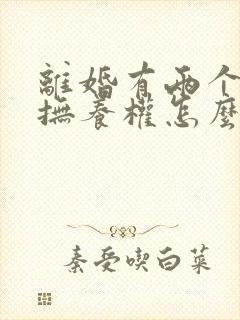 離婚有兩个
撫養權怎麽
秦受喫白菜